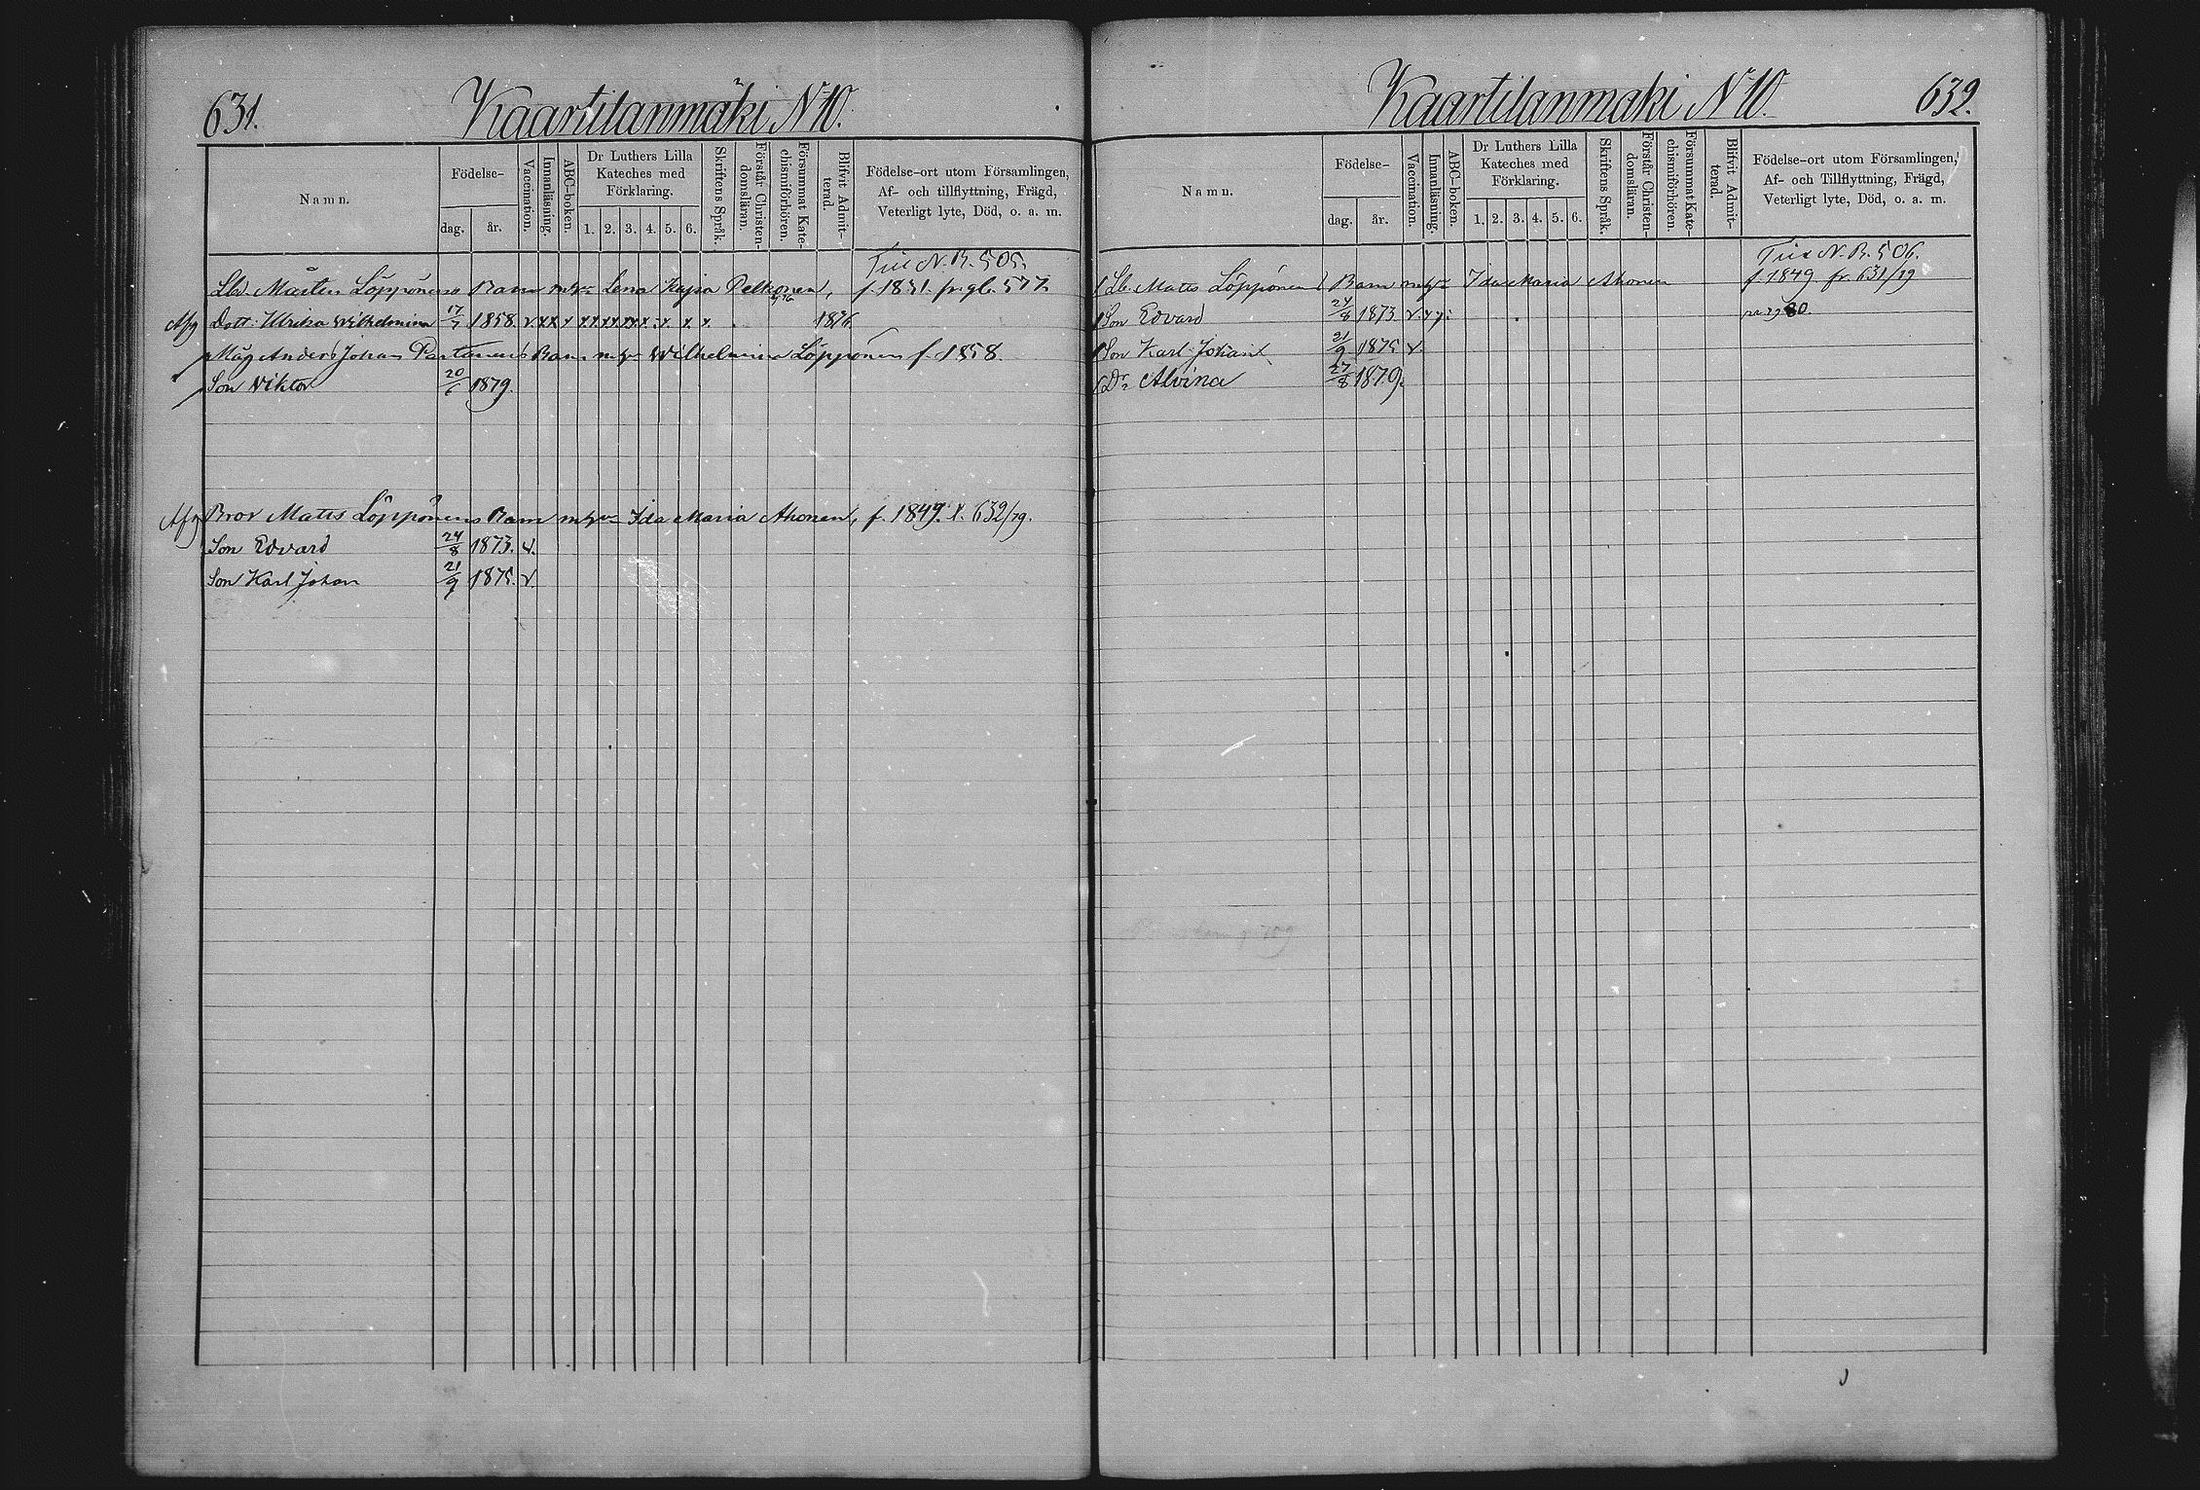 631. Kaartilanmäki N 10.
Namn.
Födelse-
dag. år.
Vaccination.
Innanläsning.
ABC-boken.
Dr Luthers Lilla
Kateches med
Förklaring.
1. 2. 3. 4. 5. 6.
Skriftens Språk.
Förstår Christen-
domsläran.
Försummat Kate-
chismiförhören.
Blifvit Admit-
terad.
Födelse-ort utom Församlingen,
Af- och tillflyttning, Frägd,
Veterligt lyte, Död, o. a. m.
N. B. 505.
Lb. Mårten Löppönens Barn m. Lena Kajsa Pelkonen, f. 1831. fr. gl. 577.
Afg Dott. Ulrika Wilhelmina 17/7 1858. v x x x x x x x x x x x 1876
Måg Anders Johan Partanens Barn m. Wilhelmina Löppönen f. 1858.
Son Viktor 20/6 1879.
Afg Bror Matts Löppönens Barn m. Ida Maria Ahonen, f. 1849. X. 632/79.
Son Edvard 24/8 1873. v.
Son Karl Johan 21/9 1875. v.
Kaartilanmäki N 10. 632.
Namn.
Födelse-
dag. år.
Vaccination.
Innanläsning.
ABC-boken.
Dr Luthers Lilla
Kateches med
Förklaring.
1. 2. 3. 4. 5. 6.
Skriftens Språk.
Förstår Christen-
domsläran.
Försummat Kate-
chismiförhören.
Blifvit Admit-
terad.
Födelse-ort utom Församlingen,
Af- och Tillflyttning, Frägd,
Veterligt lyte, Död, o. a. m.
N. B. 506.
Lb. Matts Löppönens Barn m. Ida Maria Ahonen f. 1849. fr. 631/79
Son Edvard 24/8 1873 v.
Son Karl Johan 21/9 1875 v.
Dr Alvina 27/8 1879.